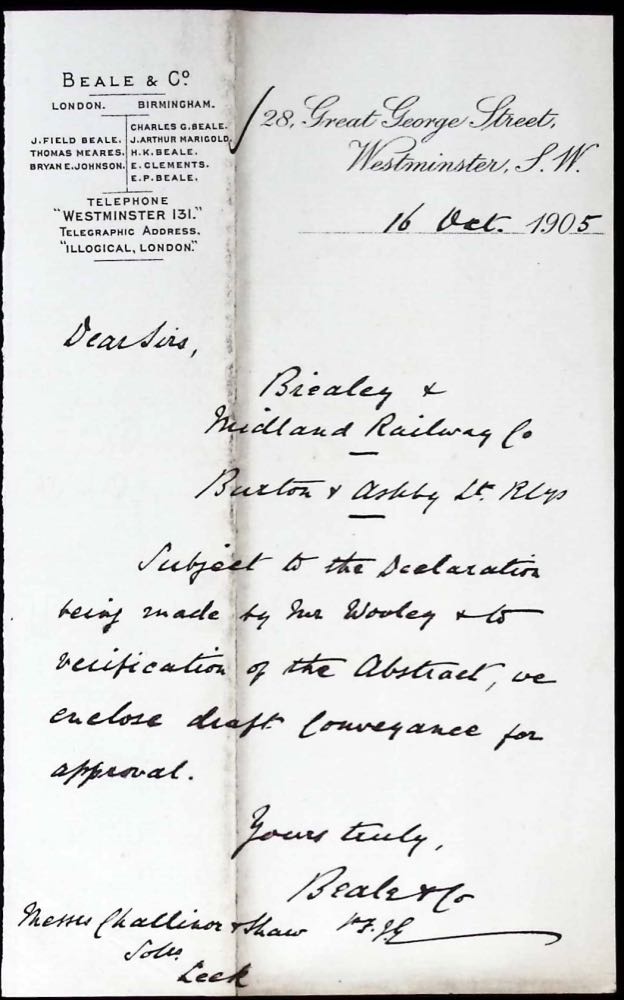 BEALE & Co
LONDON. BIRMINGHAM.
J. FIELD BEALE.
THOMAS MEARES.
BRYAN E. JOHNSON.
CHARLES G. BEALE.
J. ARTHUR MARIGOLD.
H.K. BEALE.
E. CLEMENTS.
E.P. BEALE.
TELEPHONE
"WESTMINSTER 131."
TELEGRAPHIC ADDRESS.
"ILLOGICAL, LONDON."
28, Great George Street,
Westminster, S.W.
16 Oct. 1905
Dear Sirs,
Briealey &
Midland Railway Co
Burton & Ashby Lt. Rlys
Subject to the Declaration
being made by Mr Wooley & to
verification of the Abstract, we
enclose draft Conveyance for
approval.
Yours truly,
Beale & Co
Messrs Challinor & Shaw
Solrs
Leek